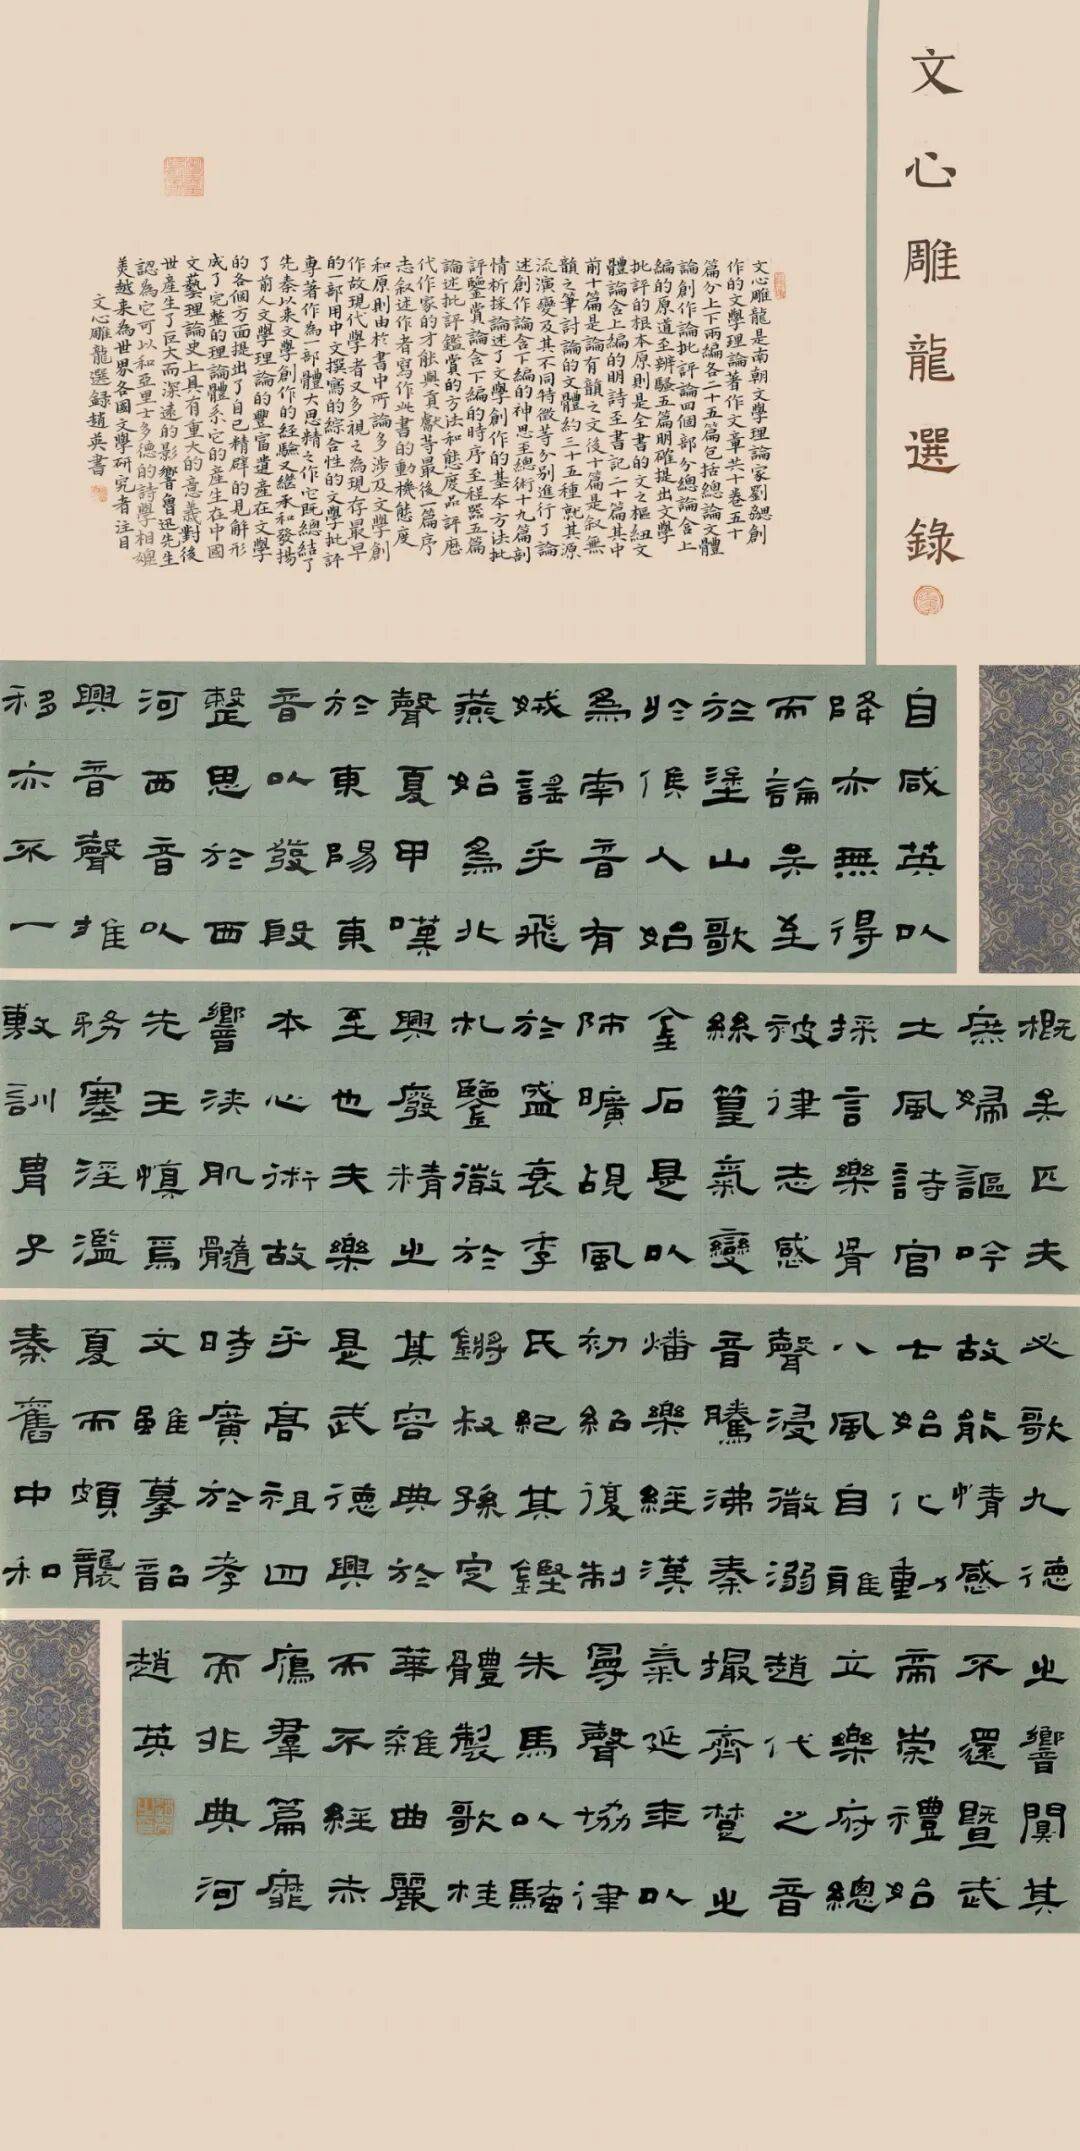 文心雕龍選錄
文心雕龍是南朝文學理論家劉勰創
作的文學理論著作文章共十卷五十
篇分上下兩編各二十五篇包括總論文體
論創作論批評論四個部分總論含上
編的原道至辨騷五篇明確提出文學
批評的根本原則是全書的文之樞紐文
體論含上編的明詩至書記二十篇其中
前十篇是論有韻之文後十篇是叙無
韻之筆討論的文體約三十五種就其源
流演變及其不同特徵等分别進行了論
述創作論含下編的神思至總術十九篇剖
情析採論述了文學創作的基本方法批
評鑒賞論含下編的時序至程器五篇
論述批評鑑賞的方法和態度品評歷
代作家的才能與貢獻等最後一篇序
志叙述作者寫作此書的動機態度
和原則由於書中所論多涉及文學創
作故現代學者又多視之為現存最早
的一部用中文撰寫的綜合性的文學批評
專著作為一部體大思精之作它既總結了
先秦以来文學創作的經驗又繼承和發揚
了前人文學理論的豐富遺產在文學
的各個方面提出了自己精辟的見解形
成了完整的理論體系它的產生在中國
文藝理論史上具有重大的意義對後
世產生了巨大而深遠的影響魯迅先生
認為它可以和亞里士多德的詩學相媲
美越来為世界各國文學研究者注目
文心雕龍選錄趙英書
自咸英以
降亦無得
而論矣至
於塗山歌
於候人始
為南音有
娀謠乎飛
燕始為北
聲夏甲嘆
於東陽東
音以發殷
整思於西
河西音以
興音聲推
移亦不一
概矣匹夫
庶婦謳吟
土風詩官
採言樂胥
被律志感
絲篁氣變
金石是以
師曠覘風
於盛衰季
札鑒微於
興廢精之
至也夫樂
本心術故
響浹肌髓
先王慎焉
務塞淫濫
敷訓胄子
必歌九德
故能情感
七始化動
八風自雅
聲浸微溺
音騰沸秦
燔樂經漢
初紹復制
氏紀其鏗
鏘叔孫定
其容典於
是武德興
乎高祖四
時廣於孝
文雖摹韶
夏而頗襲
秦舊中和
之響闃其
不還暨武
帝崇禮始
立樂府總
趙代之音
撮齊楚之
氣延年以
曼聲協律
朱馬以騷
體製歌桂
華雜曲麗
而不經赤
鴈羣篇靡
而非典河
趙英